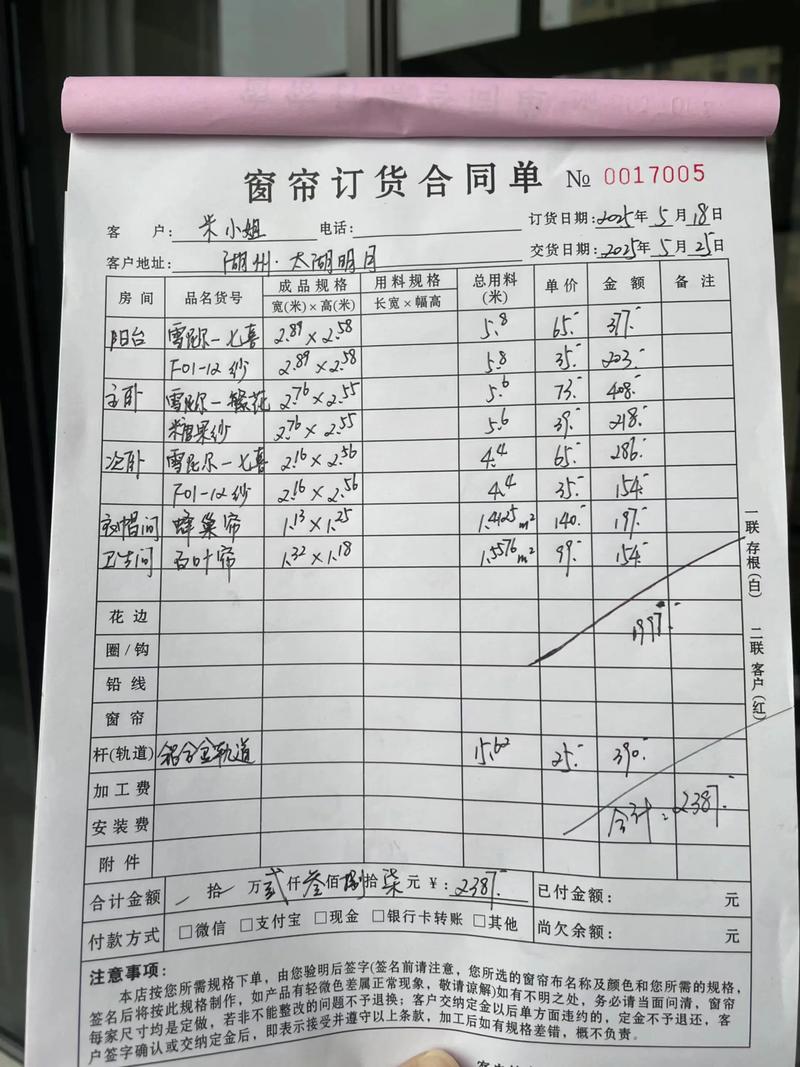 窗帘订货合同单 № 0017005
客 户: 米小姐 电话: 订货日期: 2025年 5月 18日
客户地址: 湖州·太湖明月 交货日期: 2025年 5月 25日
房 间 品名货号 成品规格 宽(米)×高(米) 用料规格 长宽×幅高 总用料(米) 单价 金 额 备 注
阳台 雪尼尔一七喜 2.89×2.58 5.8 65.- 377.-
F01-12纱 2.89×2.58 5.8 35.- 203.-
主卧 雪尼尔一繁花 2.76×2.55 5.6 73.- 408.-
糖果纱 2.76×2.55 5.6 39.- 218.-
次卧 雪尼尔一七喜 2.16×2.56 4.4 65.- 286.-
F01-12纱 2.16×2.56 4.4 35.- 154.-
衣帽间 蜂巢帘 1.13×1.25 1.4125m² 140.- 197.-
卫生间 百叶帘 1.32×1.18 1.5576m² 99.- 154.-
花 边 1997.-
圈/钩
铅 线
窗 帘
杆(轨道) 铝合金轨道 15.62 25.- 390.-
加工费
安装费 合计: 2387.-
附 件
合计金额 一 拾 一 万 贰 仟 叁 佰 捌 拾 柒 元 ¥: 2387.- 已付金额: 元
付款方式 □微信 □支付宝 □现金 □银行卡转账 □其他 尚欠余额: 元
注意事项:
本店按您所需规格下单,由您验明后签字(签名前请注意,您所选的窗帘布名称及颜色和您所需的规格,
签名后将按此规格制作,如产品有轻微色差属正常现象,敬请谅解)如有不明之处,务必请当面问清,窗帘
每家尺寸均是定做,若非不能整改的问题不予退换;客户交纳定金以后单方面违约的,定金不予退还,客
户签字确认或交纳定金后,即表示接受并遵守以上条款,加工后如有规格差错,概不负责。
一联 存根(白) 二联 客户(红)